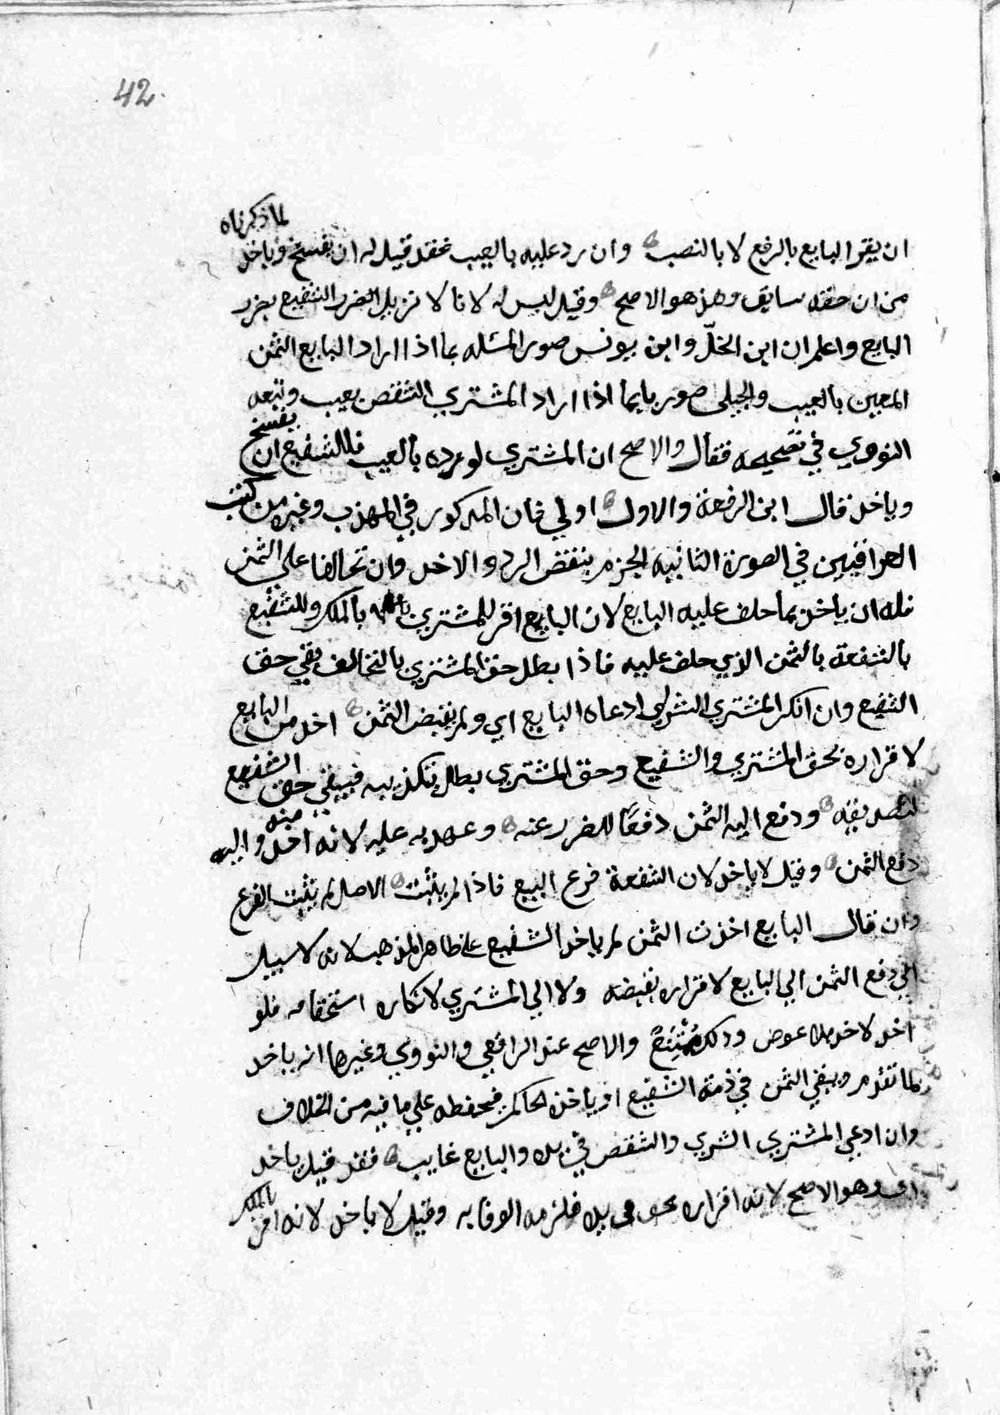 42
لما ذكرناه
ان يقر البايع بالرفع لا بالنصب وان رد عليه بالعيب فقد قيل له ان يفسخ وياخذ
من ان حقه سابق وهذ هو الاصح وقيل ليس له لانا لا نزيل الضرر الشفيع بضرر
البايع واعلم ان ابن الخلّ وابن يونس صور المسئله بما اذا اراد البايع الثمن
المعين بالعيب والجيلى صور بايما اذا اراد المشتري الشقص بعيب وتبعه
النووي في تصحيحه فقال والاصح ان المشتري لو رده بالعيب فللشفيع ان يفسخ
وياخذ قال ابن الرفعة والاول اولي فان المذكور في المهذب وغيره من كتب
العراقيين في الصورة الثانيه الجزم بنقض الرد والاخذ وان تحالفا علي الثمن
فله ان ياخذ بما حلف عليه البايع لان البايع اقر للمشتري بالملك وللشفيع
بالشفعة بالثمن الذي حلف عليه فاذا بطل حق المشتري بالتحالف بقي حق
الشفيع وان انكر المشتري الشرلي ادعاه البايع اي ولم يقبض الثمن اخذ من البايع
لاقراره بحق المشتري والشفيع وحق المشتري بطل بتكذيبه فيبقي حق الشفيع
لتصديقه ودفع اليه الثمن دفعًا للضرر عنه وعهدته عليه لانه اخذ منه واليه
دفع الثمن وقيل لا ياخذ لان الشفعة فرع البيع فاذا لم يثبت الاصل لم يثبت الفرع
وان قال البايع اخذت الثمن لم ياخذ الشفيع علي ظاهر المذهب لانه لا سبيل
الي دفع الثمن الي البايع لاقراره بقبضه ولا الي المشتري لانكاره استحقاقه فلو
اخذ لاخذ بلا عوض وذلك مُمْتَنِعٌ والاصح عند الرافعي والنووي وغيرهما انه ياخذ
لما تقدم ويبقي الثمن في ذمة الشفيع او ياخذه الحاكم فيحفظه علي ما فيه من الخلاف
وان ادعي المشتري الشري والشقص في يده والبايع غايب فقد قيل ياخذ
وهو الاصح لانه اقراره بحق في يده فلزمه الوفا به وقيل لا ياخذ لانه اقر بالملك